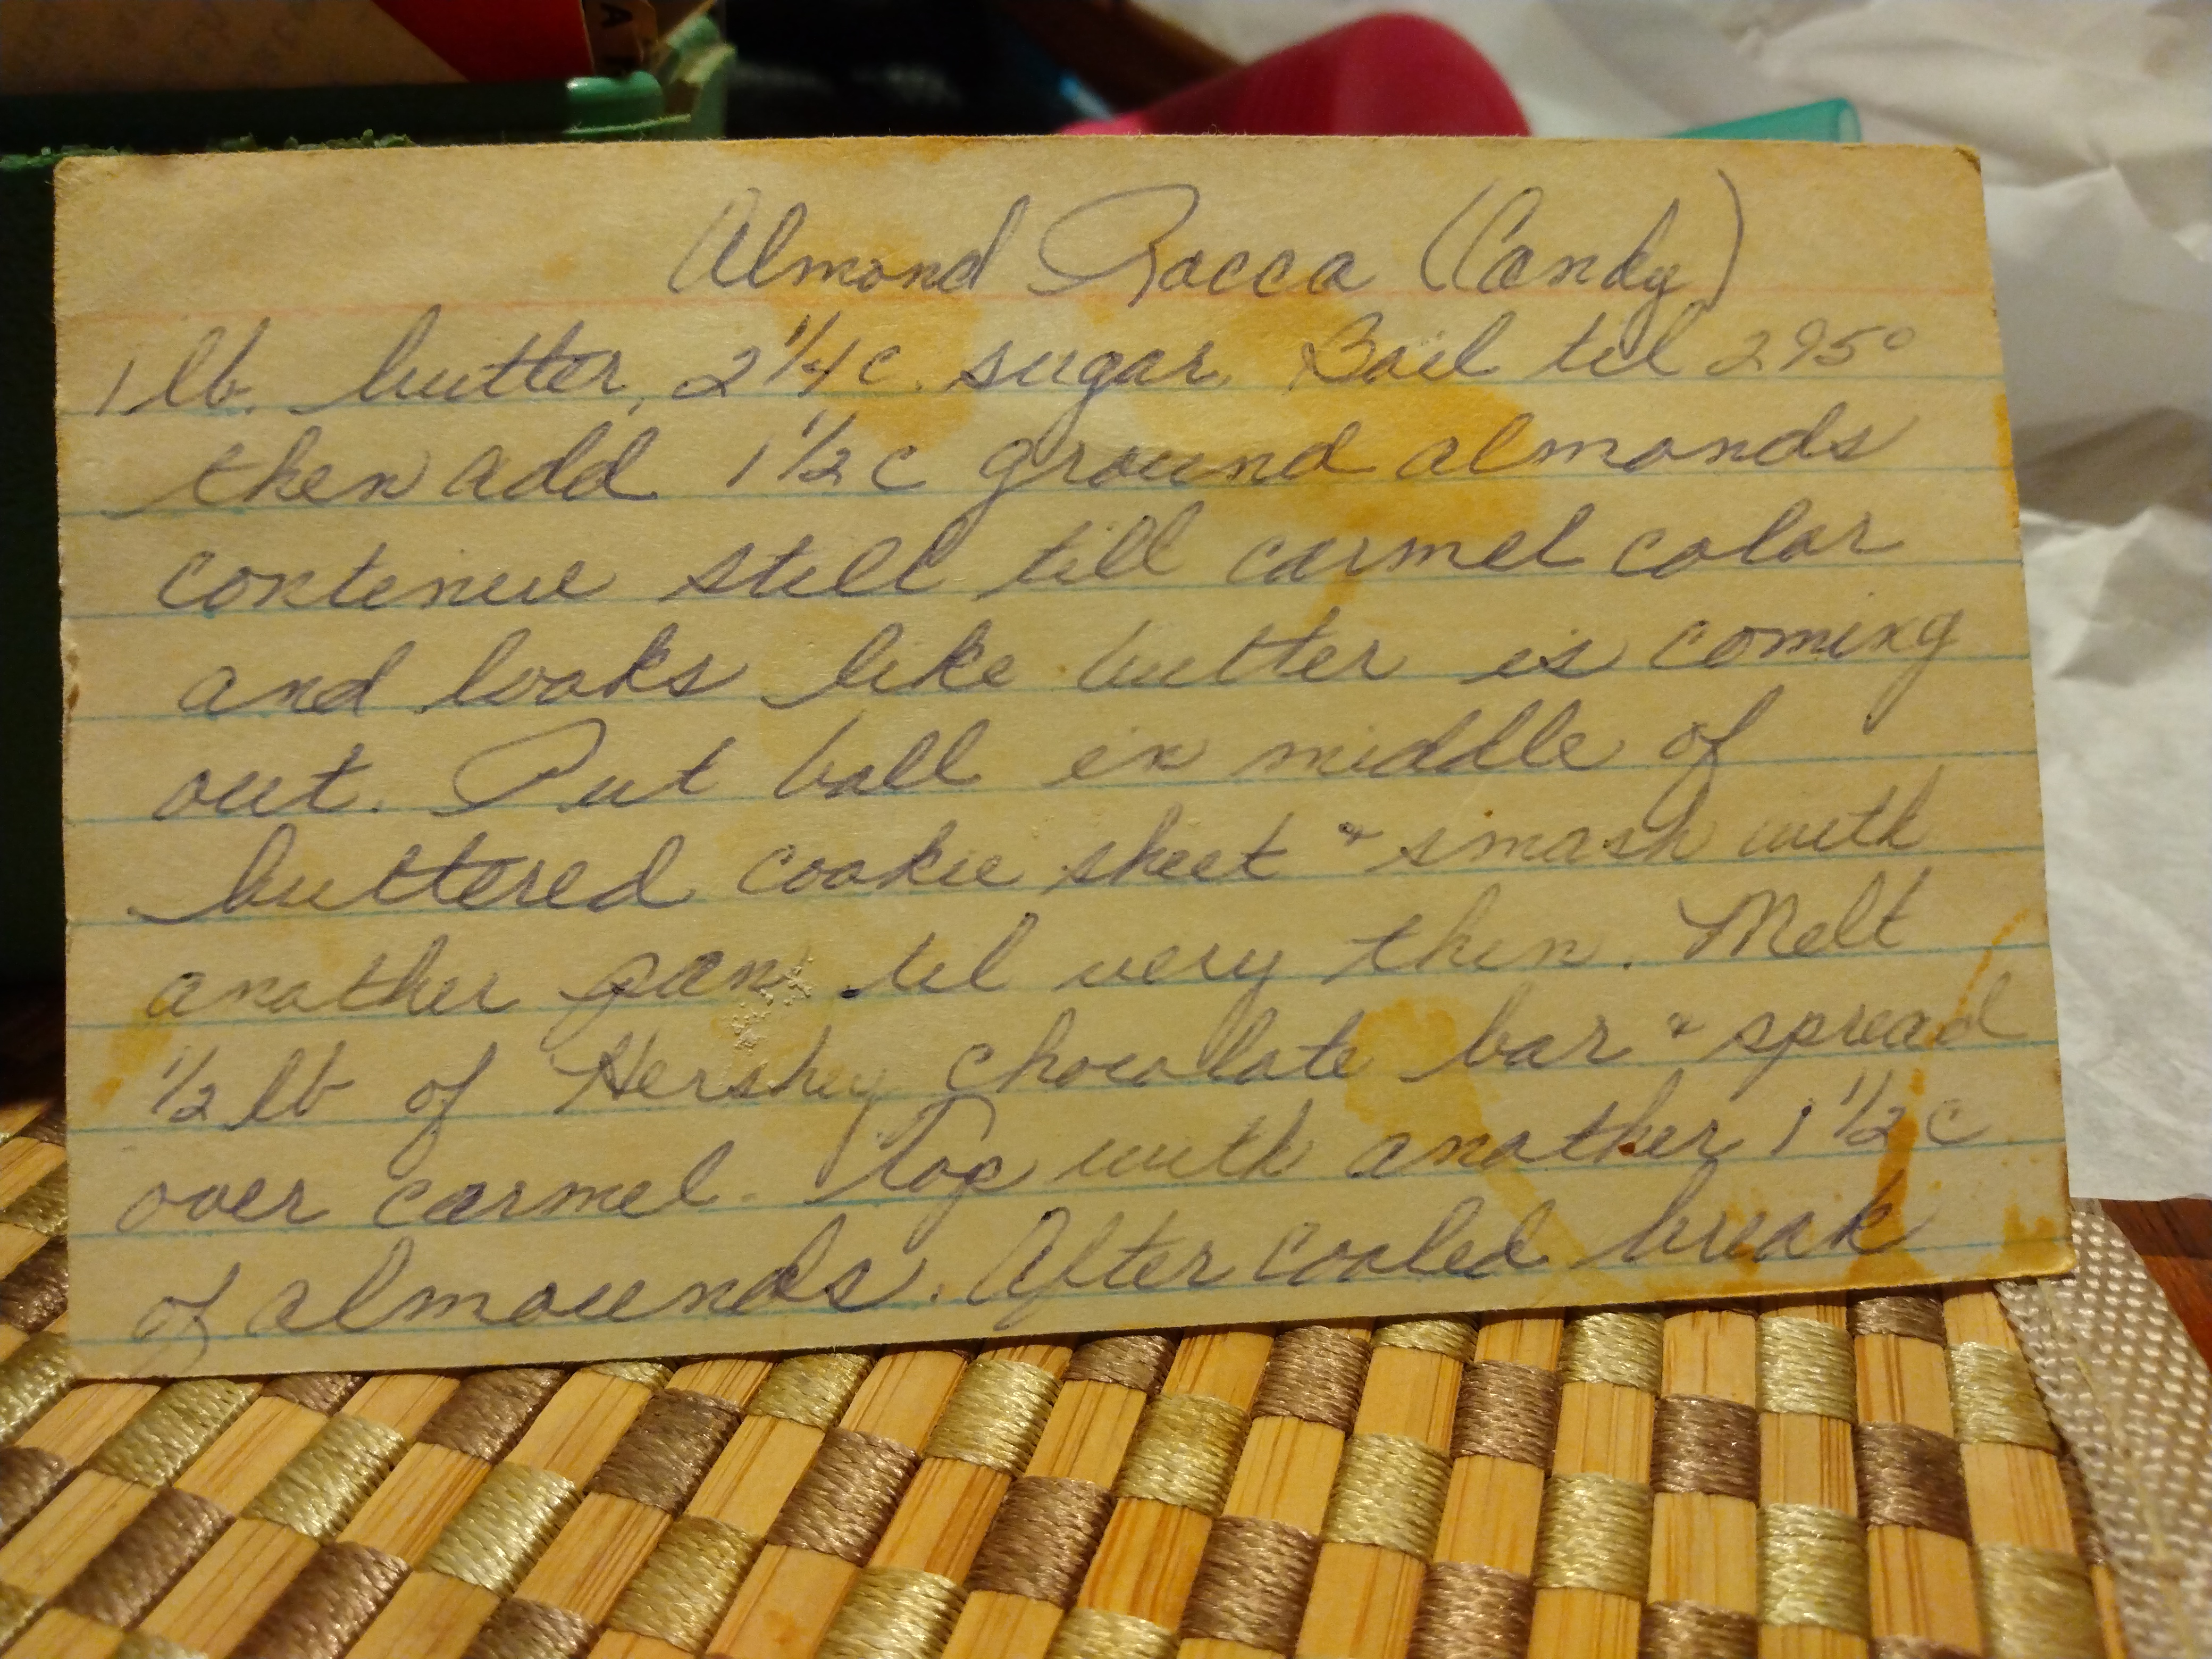 Almond Rocca (Candy)
1 lb. butter, 2 1/4 c. sugar. Boil til 295°
then add 1 1/2 c ground almonds
contenue still till carmel color
and looks like butter is coming
out. Put ball in middle of
buttered cookie sheet & smash with
another pan til very thin. Melt
1/2 lb of Hershey chocolate bar & spread
over carmel. Top with another 1 1/2 c
of almounds. After cooled break